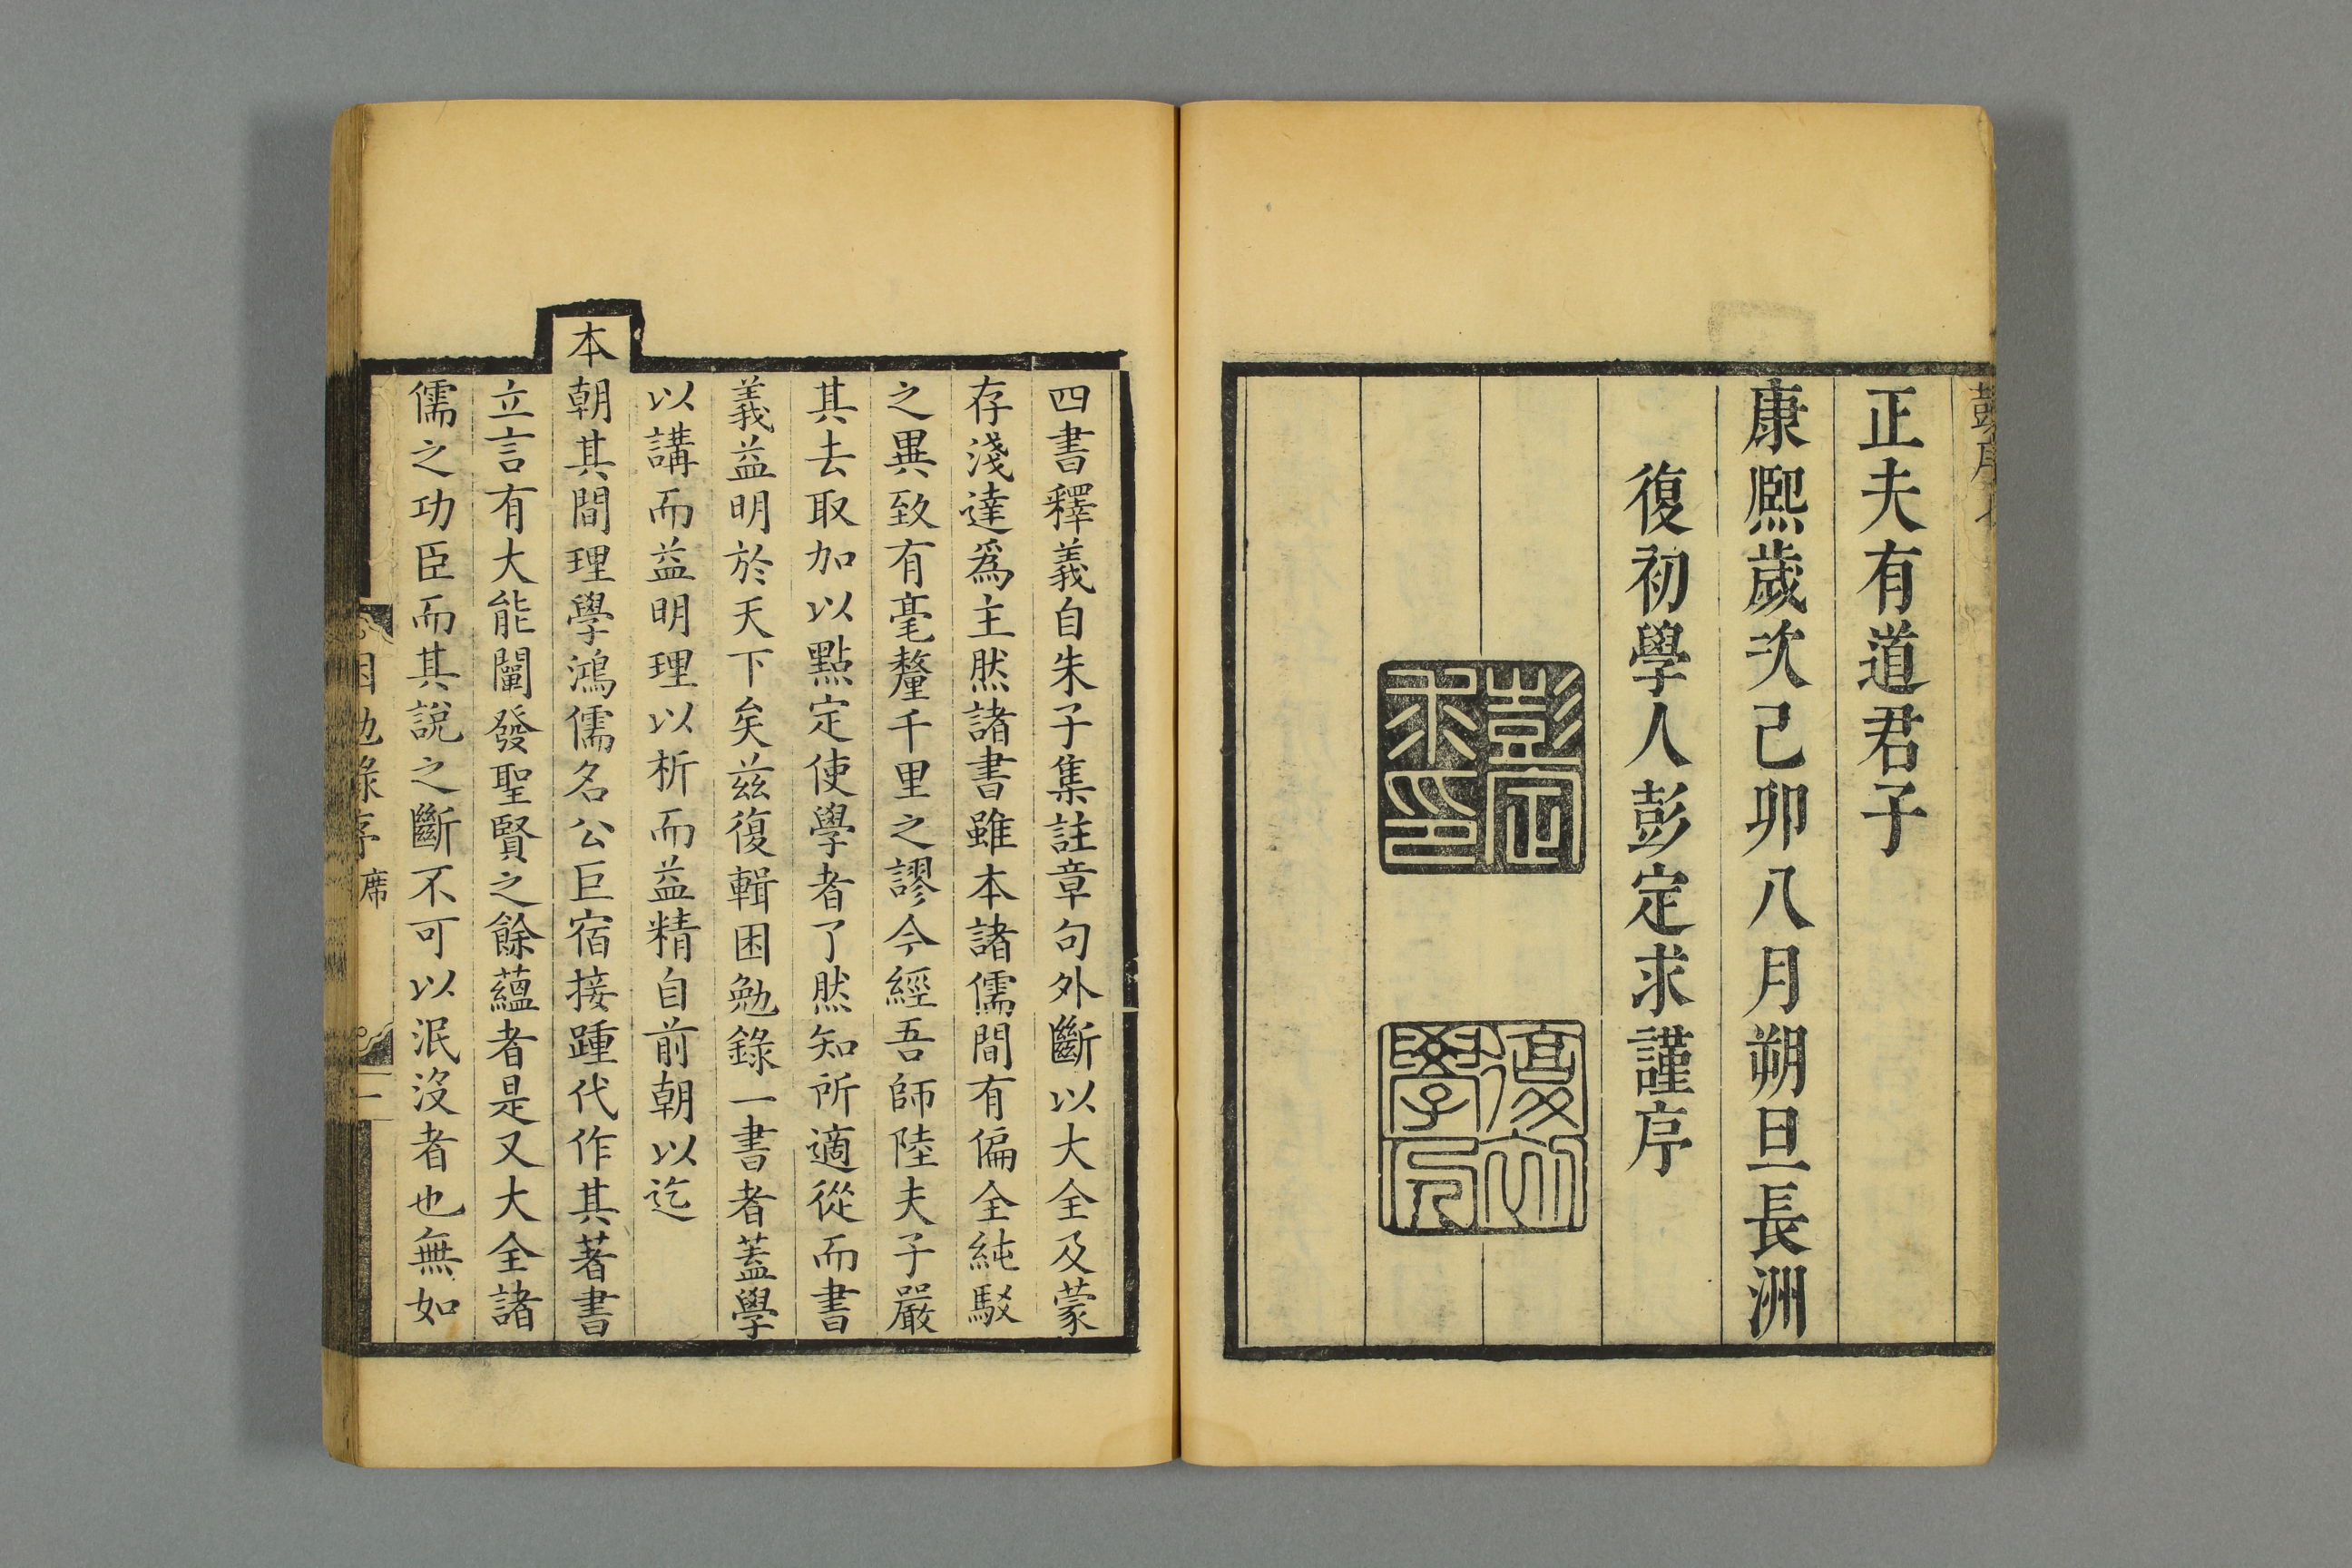 正夫有道君子
康熙歲次己卯八月朔旦長洲
復初學人彭定求謹序
彭定求印
復初學人
四書釋義自朱子集註章句外斷以大全及蒙
存淺達爲主然諸書雖本諸儒間有偏全純駁
之異致有毫釐千里之謬今經吾師陸夫子嚴
其去取加以點定使學者了然知所適從而書
義益明於天下矣茲復輯困勉錄一書者蓋學
以講而益明理以析而益精自前朝以迄
本朝其間理學鴻儒名公巨宿接踵代作其著書
立言有大能闡發聖賢之餘蘊者是又大全諸
儒之功臣而其說之斷不可以泯沒者也無如
困勉錄序 席 一